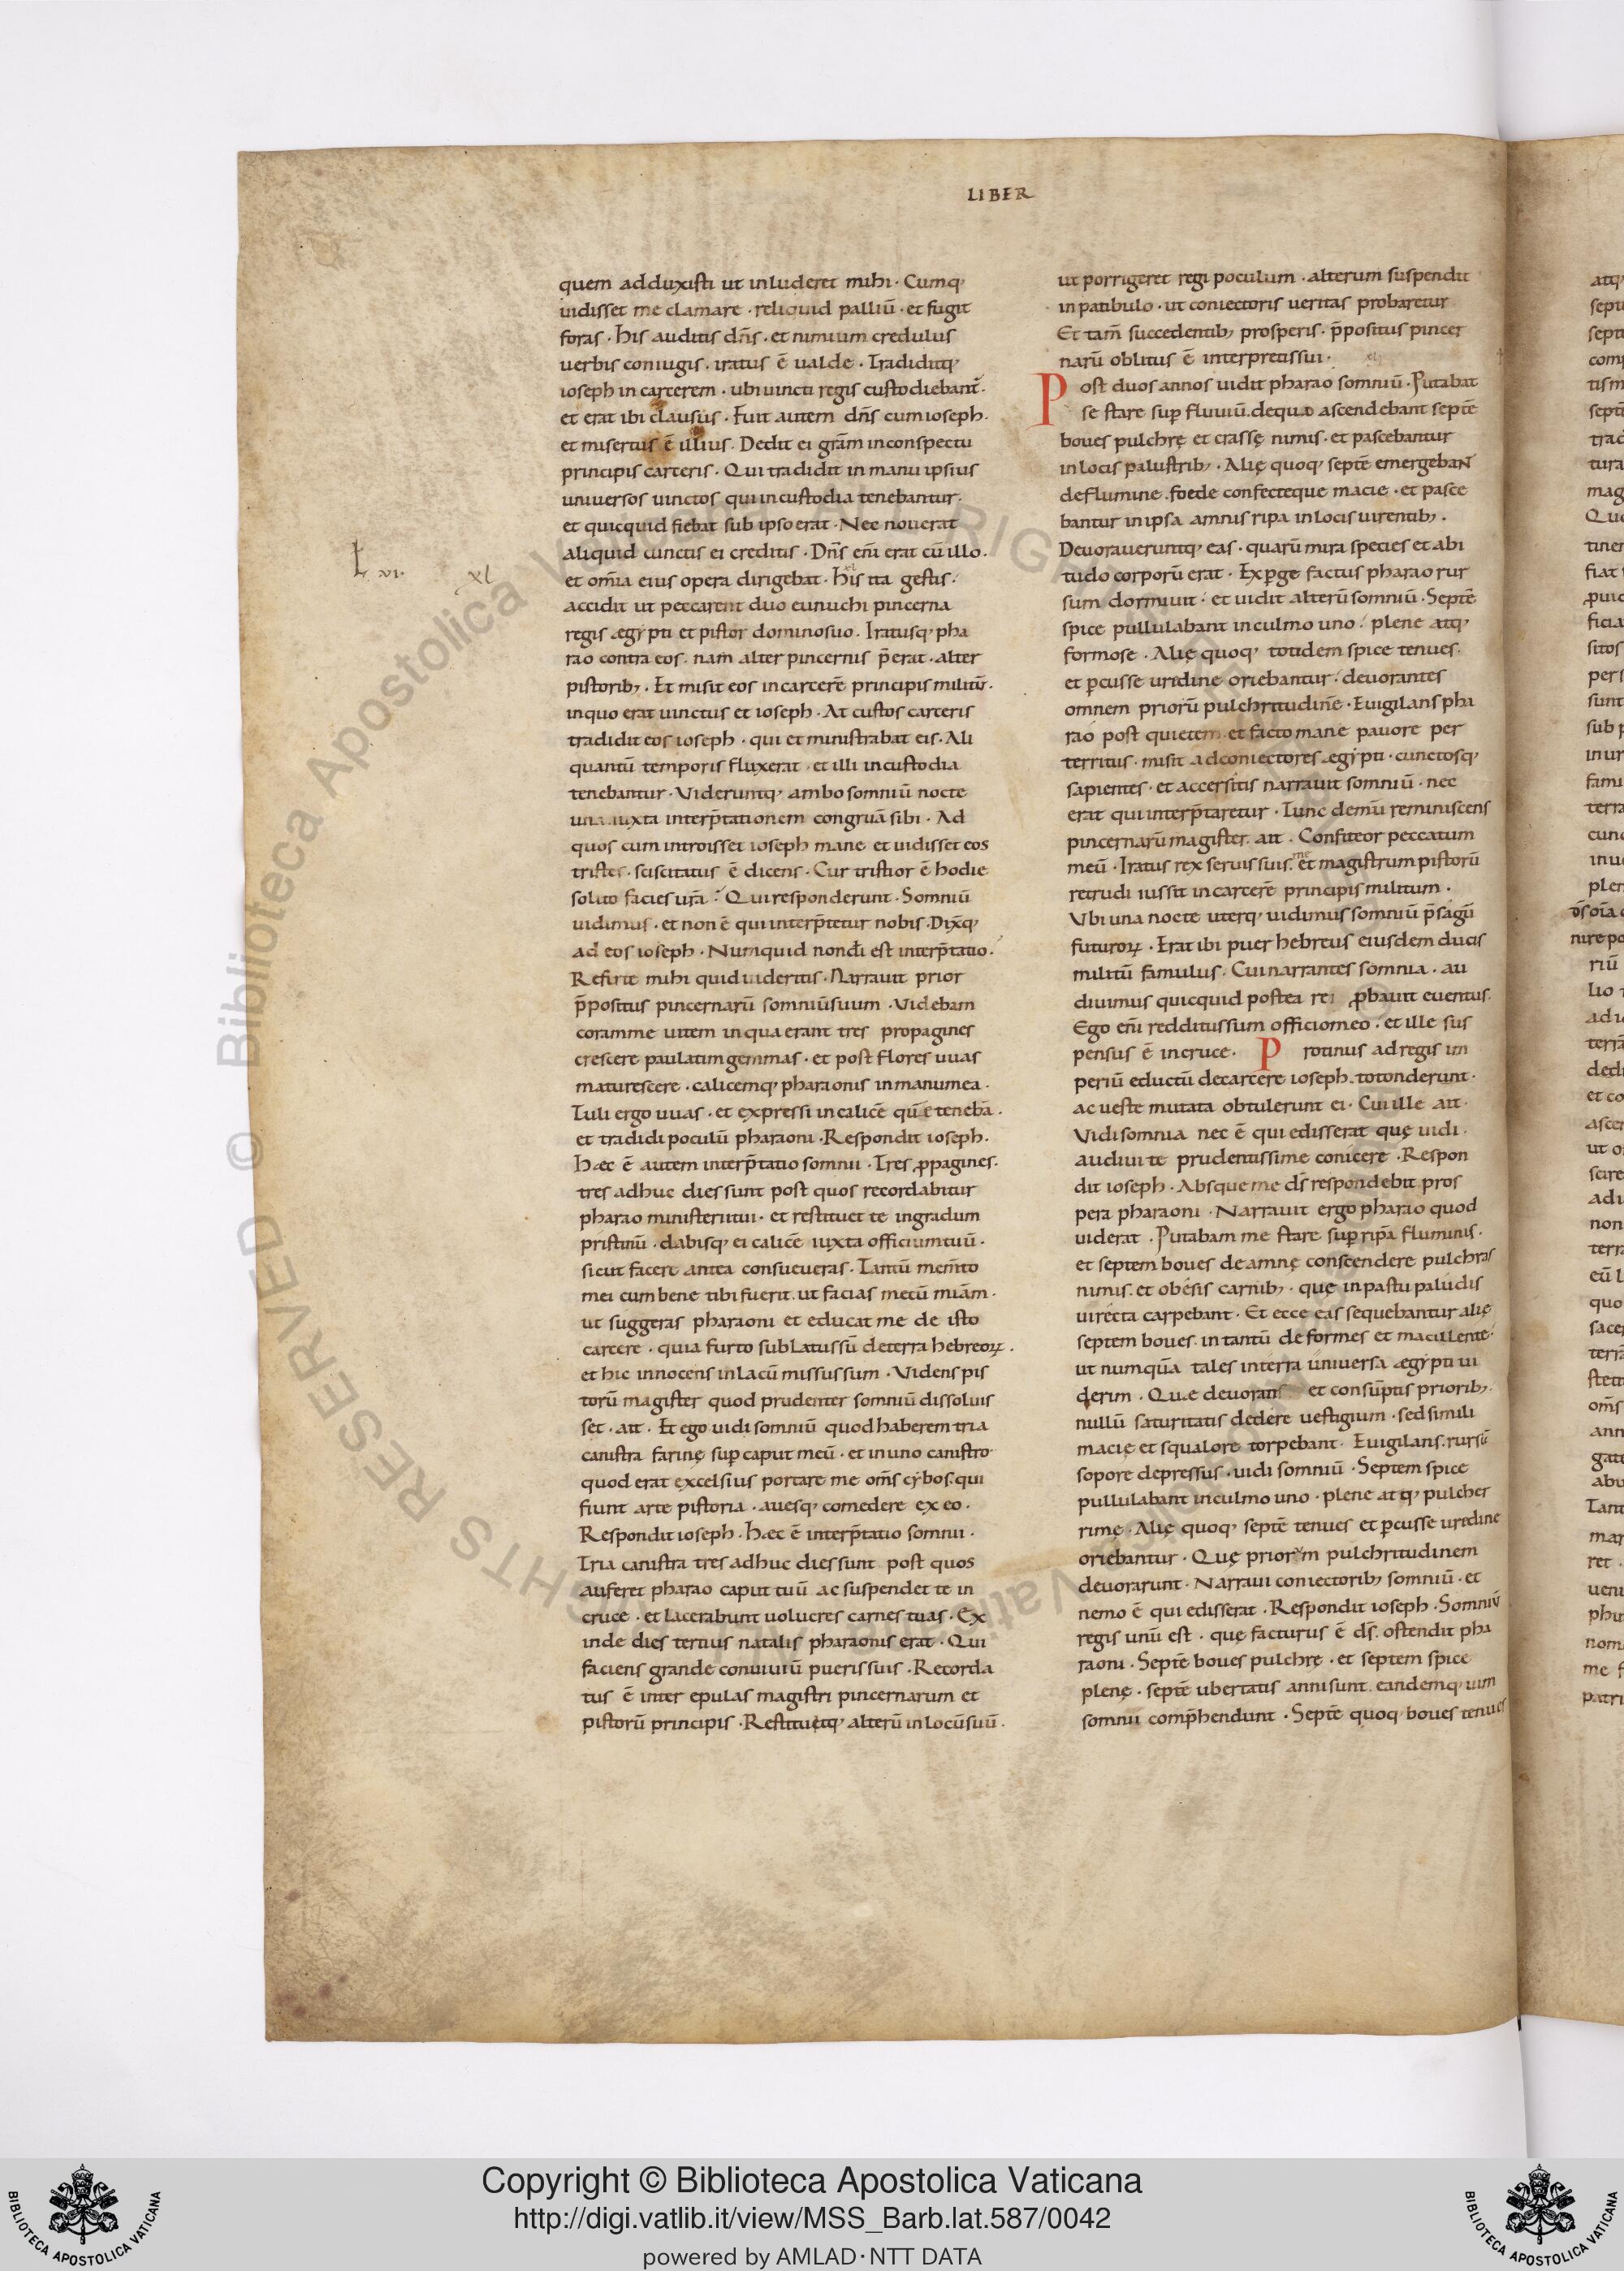 LIBER
quem adduxisti ut inluderet mihi · Cumq;
uidisset me clamare · reliquid palliū · et fugit
foras · His auditis dn̄s · et nimium credulus
uerbis coniugis · iratus ē ualde · Tradiditq;
ioseph in carcerem · ubi uincti regis custodiebant̄ ·
et erat ibi clausus · Fuit autem dn̄s cum ioseph ·
et misertus ē illius · Dedit ei grām in conspectu
principis carceris · Qui tradidit in manu ipsius
uniuersos uinctos qui in custodia tenebantur ·
et quicquid fiebat sub ipso erat · Nec nouerat
aliquid cunctis ei creditis · Dn̄s enī erat cū illo ·
L vi · xl
et om̄ia eius opera dirigebat · His ita gestis ·
accidit ut peccarent duo eunuchi pincerna
regis ægẏpti et pistor domino suo · Iratusq; pha
rao contra eos · nam alter pincernis p̄erat · alter
pistorib; · Et misit eos in carcerē principis militū ·
in quo erat uinctus et ioseph · At custos carceris
tradidit eos ioseph · qui et ministrabat eis · Ali
quantū temporis fluxerat · et illi in custodia
tenebantur · Videruntq; ambo somniū nocte
una iuxta interp̄tationem congruā sibi · Ad
quos cum introisset ioseph mane et uidisset eos
tristes · sciscitatus ē dicens · Cur tristior ē hodie
solito facies ur̄a · Qui responderunt · Somniū
uidimus · et non ē qui interp̄tetur nobis · Dix̄q;
ad eos ioseph · Numquid non dī est interp̄tatio ·
Referte mihi quid uideritis · Narrauit prior
p̄positus pincernarū somniū suum · Videbam
coram me uitem in qua erant tres propagines
crescere paulatim gemmas · et post flores uuas
maturescere · calicemq; pharaonis in manu mea ·
Tuli ergo uuas · et expressi in calicē quē tenebā ·
et tradidi poculū pharaoni · Respondit ioseph ·
Hæc ē autem interp̄tatio somnii · Tres ꝓpagines ·
tres adhuc dies sunt post quos recordabitur
pharao ministerii tui · et restituet te in gradum
pristinū · dabisq; ei calicē iuxta officium tuū ·
sicut facere antea consueueras · Tantū mem̄to
mei cum bene tibi fuerit · ut facias mecū miām ·
ut suggeras pharaoni et educat me de isto
carcere · quia furto sublatus sū de terra hebreoꝝ ·
et hic innocens in lacū missus sum · Videns pis
torū magister quod prudenter somniū dissoluis
set · ait · Et ego uidi somniū quod haberem tria
canistra farinę suꝑ caput meū · et in uno canistro
quod erat excelsius portare me om̄s cẏbos · qui
fiunt arte pistoria · auesq; comedere ex eo ·
Respondit ioseph · Hæc ē interp̄tatio somnii ·
Tria canistra tres adhuc dies sunt post quos
auferet pharao caput tuū ac suspendet te in
cruce · et lacerabunt uolucres carnes tuas · Ex
inde dies tertius natalis pharaonis erat · Qui
faciens grande conuiuiū pueris suis · Recorda
tus ē inter epulas magistri pincernarum et
pistorū principis · Restituitq; alterū in locū suū ·
ut porrigeret regi poculum · alterum suspendit
in patibulo · ut coniectoris ueritas probaretur
Et tam̄ succedentib; prosperis · p̄positus pincer
narū oblitus ē interpretis sui ·
Post duos annos uidit pharao somniū · Putabat
se stare suꝑ fluuiū de quo ascendebant septē
boues pulchrę et crassę nimis · et pascebantur
in locis palustrib; · Alię quoq; septē emergebant
de flumine · foede confecteque macie · et pasce
bantur in ipsa amnis ripa in locis uirentib; ·
Deuoraueruntq; eas · quarū mira species et abi
tudo corporū erat · Exꝑge factus pharao rur
sum dormiuit · et uidit alterū somniū · Septē
spice pullulabant in culmo uno · plene atq;
formose · Alię quoq; totidem spice tenues ·
et ꝑcusse uredine oriebantur · deuorantes
omnem priorū pulchritudinē · Euigilans pha
rao post quietem et facto mane pauore per
territus · misit ad coniectores ægẏpti · cunctosq;
sapientes · et accersitis narrauit somniū · nec
erat qui interp̄taretur · Tunc demū reminiscens
pincernarū magister ait · Confiteor peccatum
meū · Iratus rex seruis suis · me et magistrum pistorū
retrudi iussit in carcerē principis militum ·
Vbi una nocte uterq; uidimus somniū p̄sagū
futuroꝝ · Erat ibi puer hebreus eiusdem ducis
militū famulus · Cui narrantes somnia · au
diuimus quicquid postea rei ꝓbauit euentus ·
Ego enī redditus sum officio meo · et ille sus
pensus ē in cruce · Protinus ad regis im
periū eductū de carcere ioseph · totonderunt ·
ac ueste mutata obtulerunt ei · Cui ille ait ·
Vidi somnia nec ē qui edisserat quę uidi ·
audiui te prudentissime conicere · Respon
dit ioseph · Absque me ds̄ respondebit pros
pera pharaoni · Narrauit ergo pharao quod
uiderat · Putabam me stare suꝑ ripā fluminis ·
et septem boues de amne conscendere pulchras
nimis · et obesis carnib; · quę in pastu paludis
uirecta carpebant · Et ecce eas sequebantur alię
septem boues · in tantū deformes et macilente ·
ut numquā tales in terra uniuersa ægẏpti ui
derim · Quæ deuoratis et consūptis priorib; ·
nullū saturitatis dedere uestigium · sed simili
macie et squalore torpebant · Euigilans · rursū
sopore depressus · uidi somniū · Septem spice
pullulabant in culmo uno · plene atq; pulcher
rimę · Alię quoq; septē tenues et ꝑcusse uredine
oriebantur · Quę priorum pulchritudinem
deuorarunt · Narraui coniectorib; somniū · et
nemo ē qui edisserat · Respondit ioseph · Somniū
regis unū est · quę facturus ē ds̄ · ostendit pha
raoni · Septē boues pulchrę · et septem spice
plenę · septē ubertatis anni sunt · eandemq; uim
somnii comp̄hendunt · Septē quoq; boues tenues
Copyright © Biblioteca Apostolica Vaticana
http://digi.vatlib.it/view/MSS_Barb.lat.587/0042
powered by AMLAD·NTT DATA
BIBLIOTECA APOSTOLICA VATICANA
BIBLIOTECA APOSTOLICA VATICANA